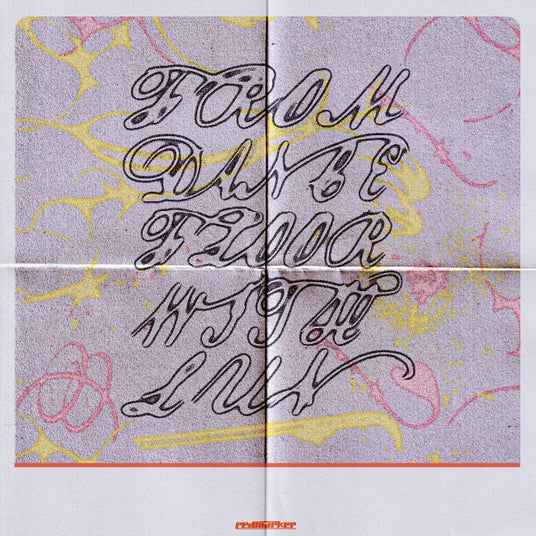 FROM
DANCE
FLOOR
WITH
LUV
redmarker